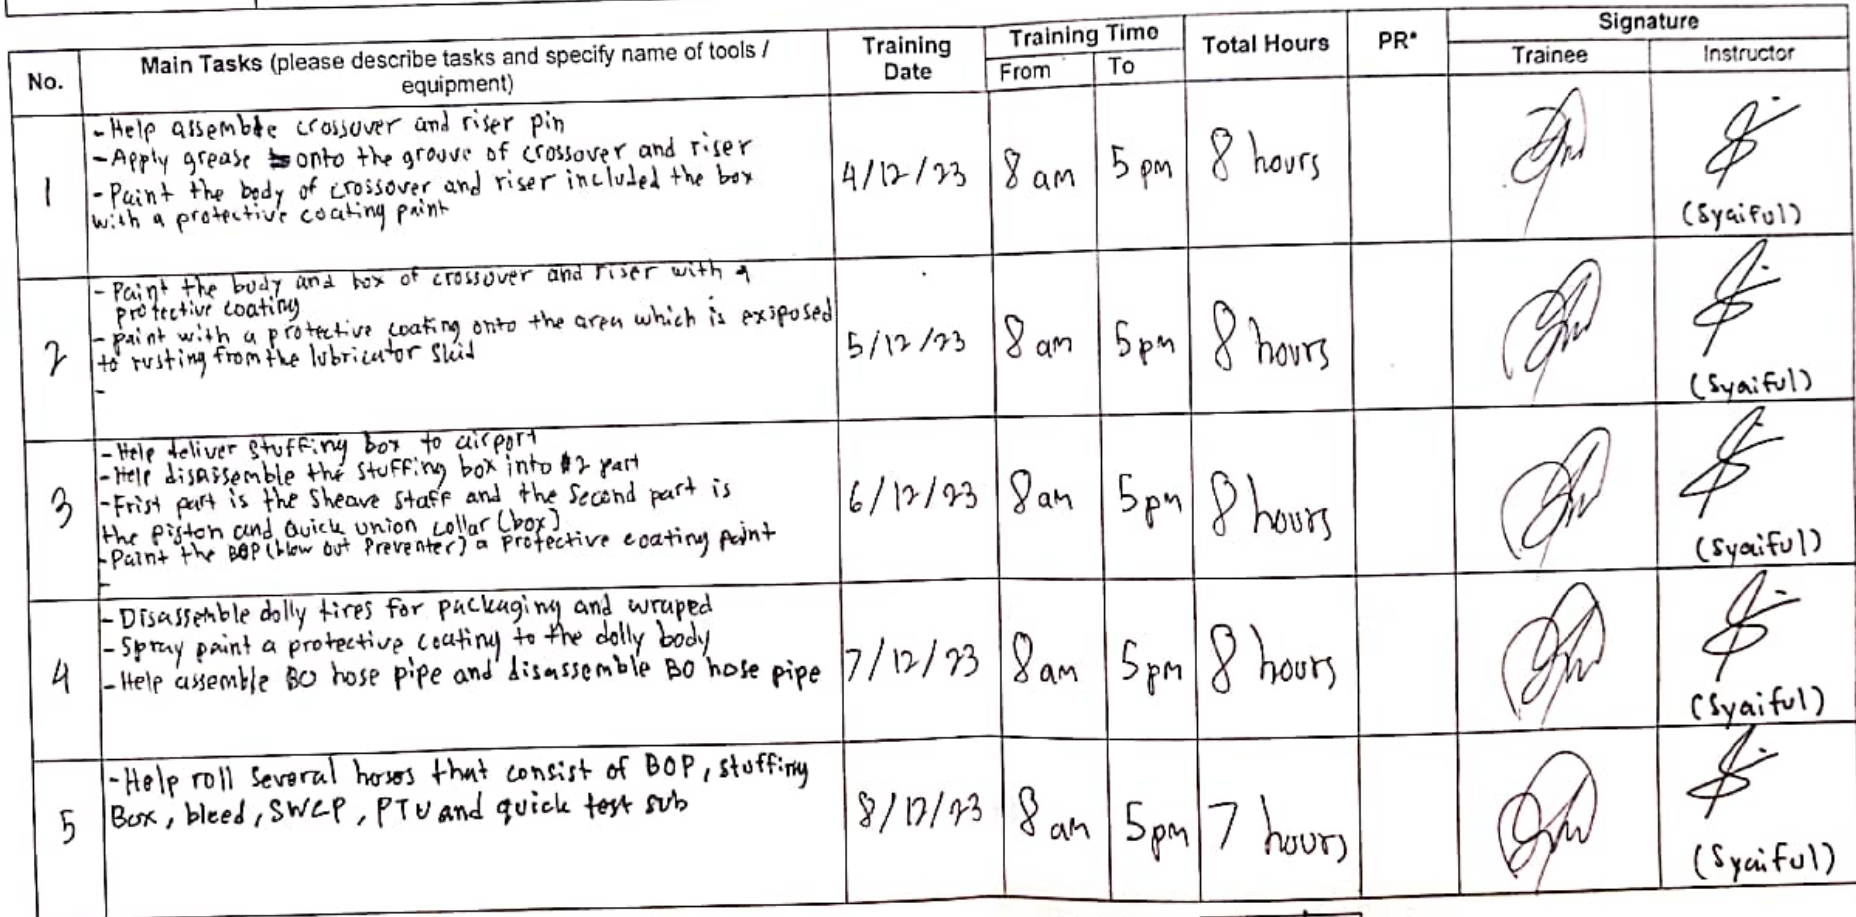 No.
Main Tasks (please describe tasks and specify name of tools /
equipment)
Training
Date
Training Time
From
To
Total Hours
PR*
Signature
Trainee
Instructor
1
-Help assemble crossover and riser pin
-Apply grease onto the groove of crossover and riser
-Paint the body of crossover and riser included the box
with a protective coating paint
4/12/23
8 am
5 pm
8 hours
(Syaiful)
2
-Paint the body and box of crossover and riser with a
protective coating
-paint with a protective coating onto the area which is exiposed
to rusting from the lubricator skid
-
5/12/23
8 am
5pm
8 hours
(Syaiful)
3
-Help deliver stuffing box to airport
-Help disassemble the stuffing box into 2 part
-Frist part is the Sheave staff and the Second part is
the piston and Quick union collar (box)
-Paint the BOP (blow out Preventer) a protective coating paint
-
6/12/23
8am
5pm
8 hours
(Syaiful)
4
-Disassemble dolly tires for packaging and wraped
-Spray paint a protective coating to the dolly body
-Help assemble BO hose pipe and disassemble BO hose pipe
7/12/23
8am
5pm
8 hours
(Syaiful)
5
-Help roll several hoses that consist of BOP, stuffing
Box, bleed, SWCP, PTU and quick test sub
8/12/23
8 am
5pm
7 hours
(Syaiful)